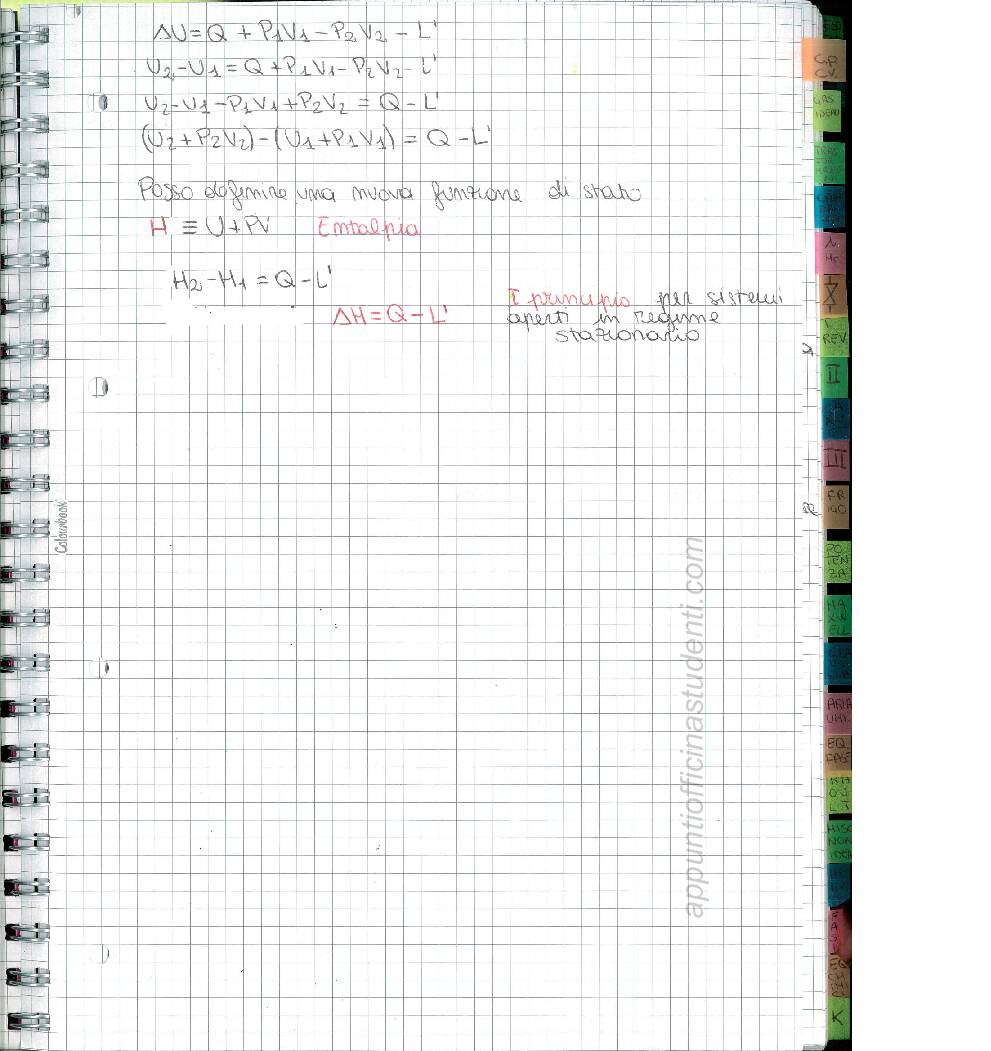 ΔU = Q + P1V1 - P2V2 - L'
U2 - U1 = Q + P1V1 - P2V2 - L'
U2 - U1 - P1V1 + P2V2 = Q - L'
(U2 + P2V2) - (U1 + P1V1) = Q - L'
Posso definire una nuova funzione di stato
H ≡ U + PV Entalpia
H2 - H1 = Q - L'
ΔH = Q - L'
I principio per sistemi
aperti in regime
stazionario
Colourbook
appuntiofficinastudenti.com
C.P.
C.V.
GAS
IDEALI
REV.
II
III
FR
IGO
PO
TEN
ZA
MA
XW
ELL
ARIA
UMI.
EQ.
FASE
MISC
NON
IDEA
K